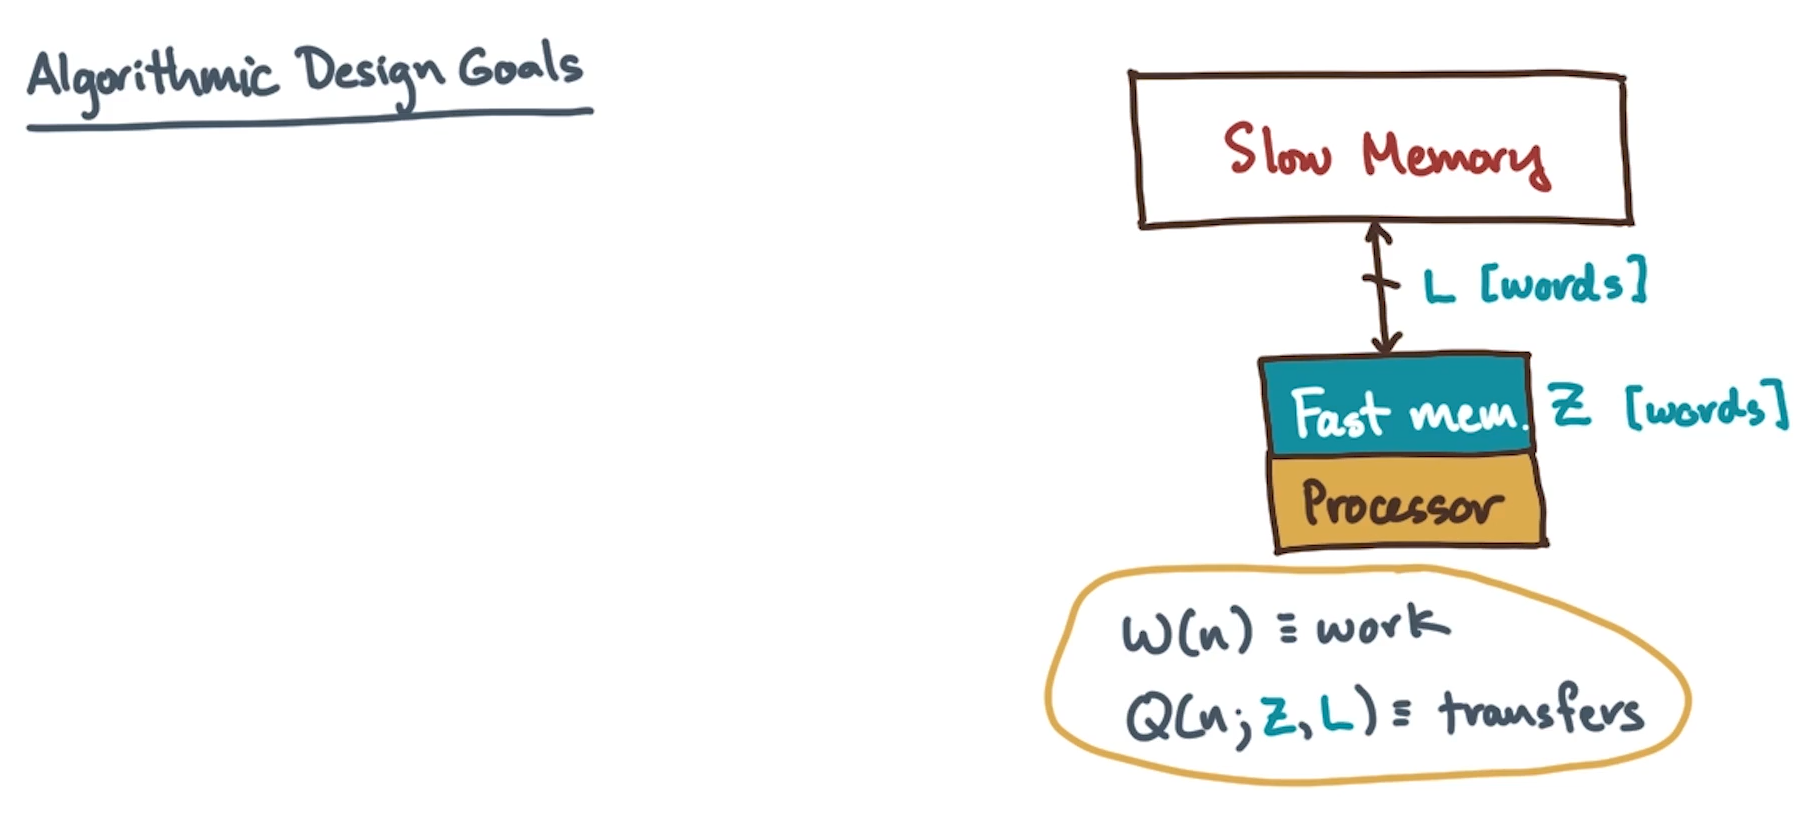 Algorithmic Design Goals
Slow Memory
L [words]
Fast mem. Z [words]
Processor
W(n) ≡ work
Q(n; Z, L) ≡ transfers